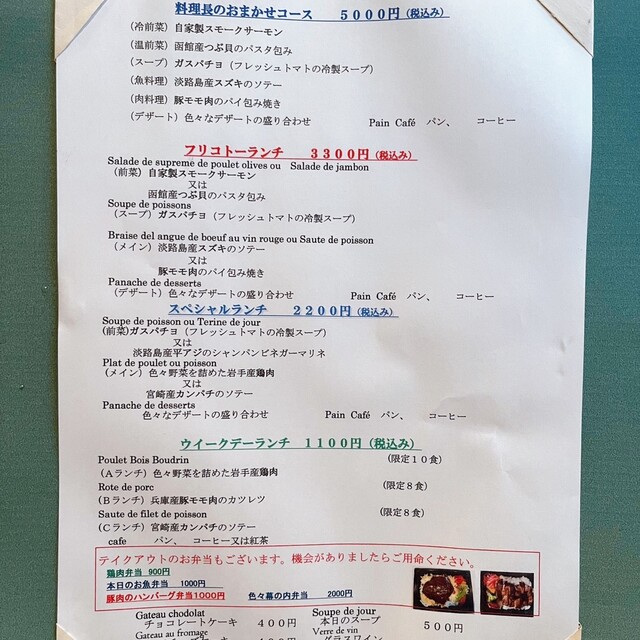 料理長のおまかせコース　５０００円（税込み）
（冷前菜）自家製スモークサーモン
（温前菜）函館産つぶ貝のパスタ包み
（スープ）ガスパチョ（フレッシュトマトの冷製スープ）
（魚料理）淡路島産スズキのソテー
（肉料理）豚モモ肉のパイ包み焼き
（デザート）色々なデザートの盛り合わせ　Pain Café　パン、　コーヒー
フリコトーランチ　３３００円（税込み）
Salade de supreme de poulet olives ou Salade de jambon
（前菜）自家製スモークサーモン
又は
函館産つぶ貝のパスタ包み
Soupe de poissons
（スープ）ガスパチョ（フレッシュトマトの冷製スープ）
Braise del angue de boeuf au vin rouge ou Saute de poisson
（メイン）淡路島産スズキのソテー
又は
豚モモ肉のパイ包み焼き
Panache de desserts
（デザート）色々なデザートの盛り合わせ　Pain Café　パン、　コーヒー
スペシャルランチ　２２００円（税込み）
Soupe de poisson ou Terine de jour
（前菜）ガスパチョ（フレッシュトマトの冷製スープ）
又は
淡路島産平アジのシャンパンビネガーマリネ
Plat de poulet ou poisson
（メイン）色々野菜を詰めた岩手産鶏肉
又は
宮崎産カンパチのソテー
Panache de desserts
色々なデザートの盛り合わせ　Pain Café　パン、　コーヒー
ウイークデーランチ　１１００円（税込み）
Poulet Bois Boudrin　（限定１０食）
（Aランチ）色々野菜を詰めた岩手産鶏肉
Rote de porc　（限定８食）
（Bランチ）兵庫産豚モモ肉のカツレツ
Saute de filet de poisson　（限定８食）
（Cランチ）宮崎産カンパチのソテー
cafe　パン、　コーヒー又は紅茶
テイクアウトのお弁当もございます。機会がありましたらご用命ください。
鶏肉弁当　900円
本日のお魚弁当　1000円
豚肉のハンバーグ弁当1000円　色々幕の内弁当　2000円
Gateau chodolat　Soupe de jour
チョコレートケーキ　４００円　本日のスープ　５００円
Gateau au fromage　Verre de vin
グラスワイン